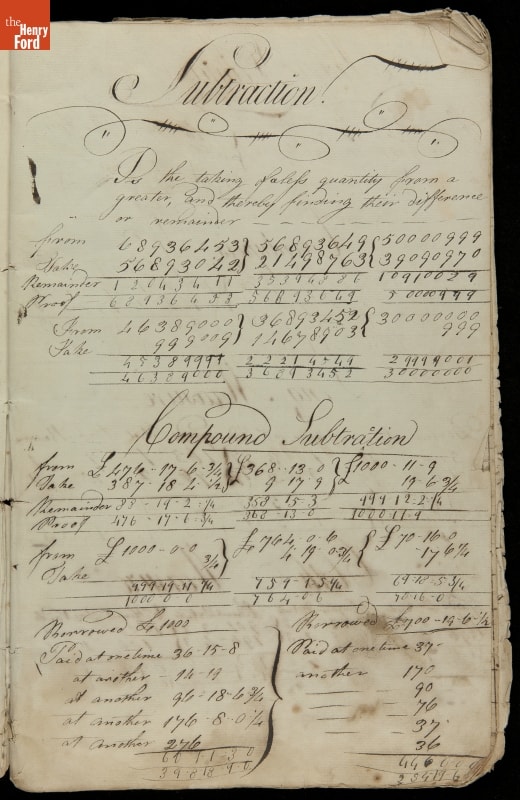 the
Henry
Ford
Subtraction.
Is the taking of a less quantity from a
greater, and thereby finding their difference
or remainder
From 68936453 56893649 50000999
Take 56893042 21498763 39090970
Remainder 12043411 10910029
Proof 68936453 56893649 50000999
From 46389000 36893452 30000000
Take 999009 14678903 999
45389991 22214549 29999001
46389000 36893452 30000000
Compound Subtration
from £476-17-6-3/4 £368-13-0 £1000-11-9
Take 387-18-4-1/2 9-17-9 19-6 3/4
Remainder 88-19-2-1/4 358-15-3 999 12-2-1/4
Proof 476-17-6-3/4 368-13-0 1000 11-9
from £1000-0-0 £764 0-6 £70-16-0
Take 3/4 4 19 0 3/4 17 6 3/4
999-19-11-1/4 759-1-5 1/4 69-18-5 3/4
1000 0 0 764-0 6 70 16-0
Borrowed £1000 Borrowed £700-19-6-1/2
Paid at one time 36-15-8 Paid at one time 37
at another 14-19 another 170
at another 96-18-6 3/4 90
at another 176-8-0 1/4 76
at another 276 37
36
446 0 0